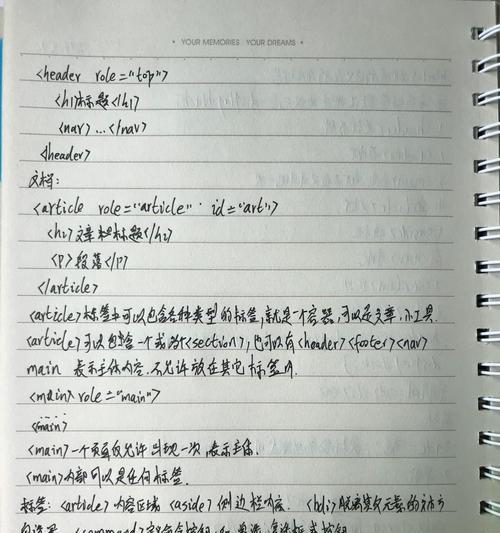 YOUR MEMORIES YOUR DREAMS
<header role="top">
<h1>标题</h1>
<nav> ... </nav>
<header>
文档:
<article role="article" id="art">
<h2>文章标题</h2>
<p>段落</p>
</article>
<article>标签中可以包含各种类型的标签,就是一个容器,可以是文章,小工具.
<article>可以包含一个或多个<section>,也可以有<header><footer><nav>
main 表示主体内容.不允许放在其它标签内.
<main role="main">
<main>
<main>一个页面仅允许出现一次,表示主体.
<main>内部可以是任何标签.
标签: <article>内容区域 <aside>侧边栏内容. <bdi>脱离其父元素的方向
<command>命令按钮,